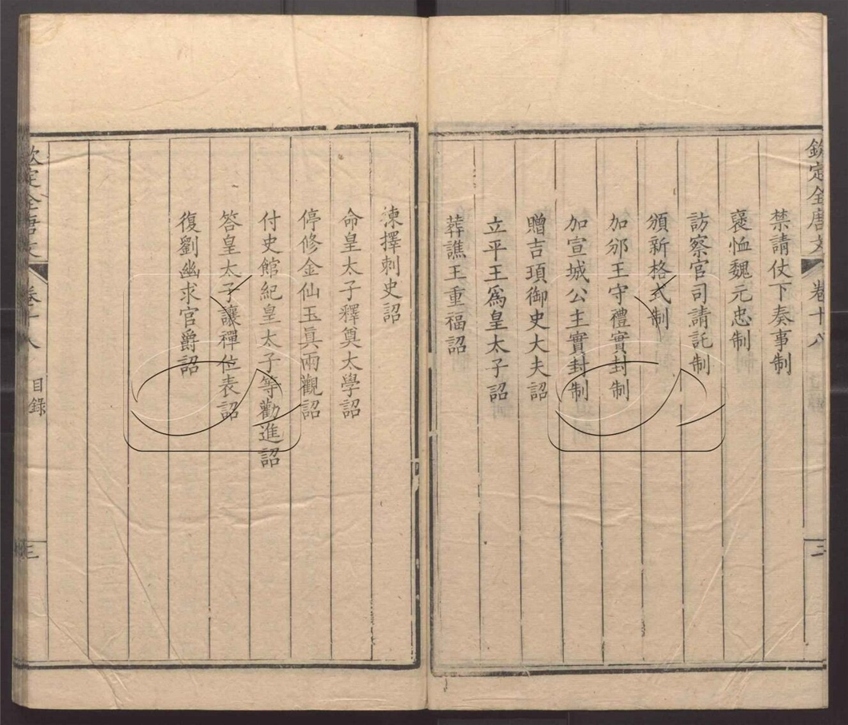 欽定全唐文
卷十八
二
禁請仗下奏事制
襃恤魏元忠制
訪察官司請託制
頒新格式制
加邠王守禮實封制
加宣城公主實封制
贈吉頊御史大夫詔
立平王爲皇太子詔
葬譙王重福詔
涷擇刺史詔
命皇太子釋奠太學詔
停修金仙玉眞兩觀詔
付史館紀皇太子等勸進詔
答皇太子讓禪位表詔
復劉幽求官爵詔
欽定全唐文
卷十八
目錄
三